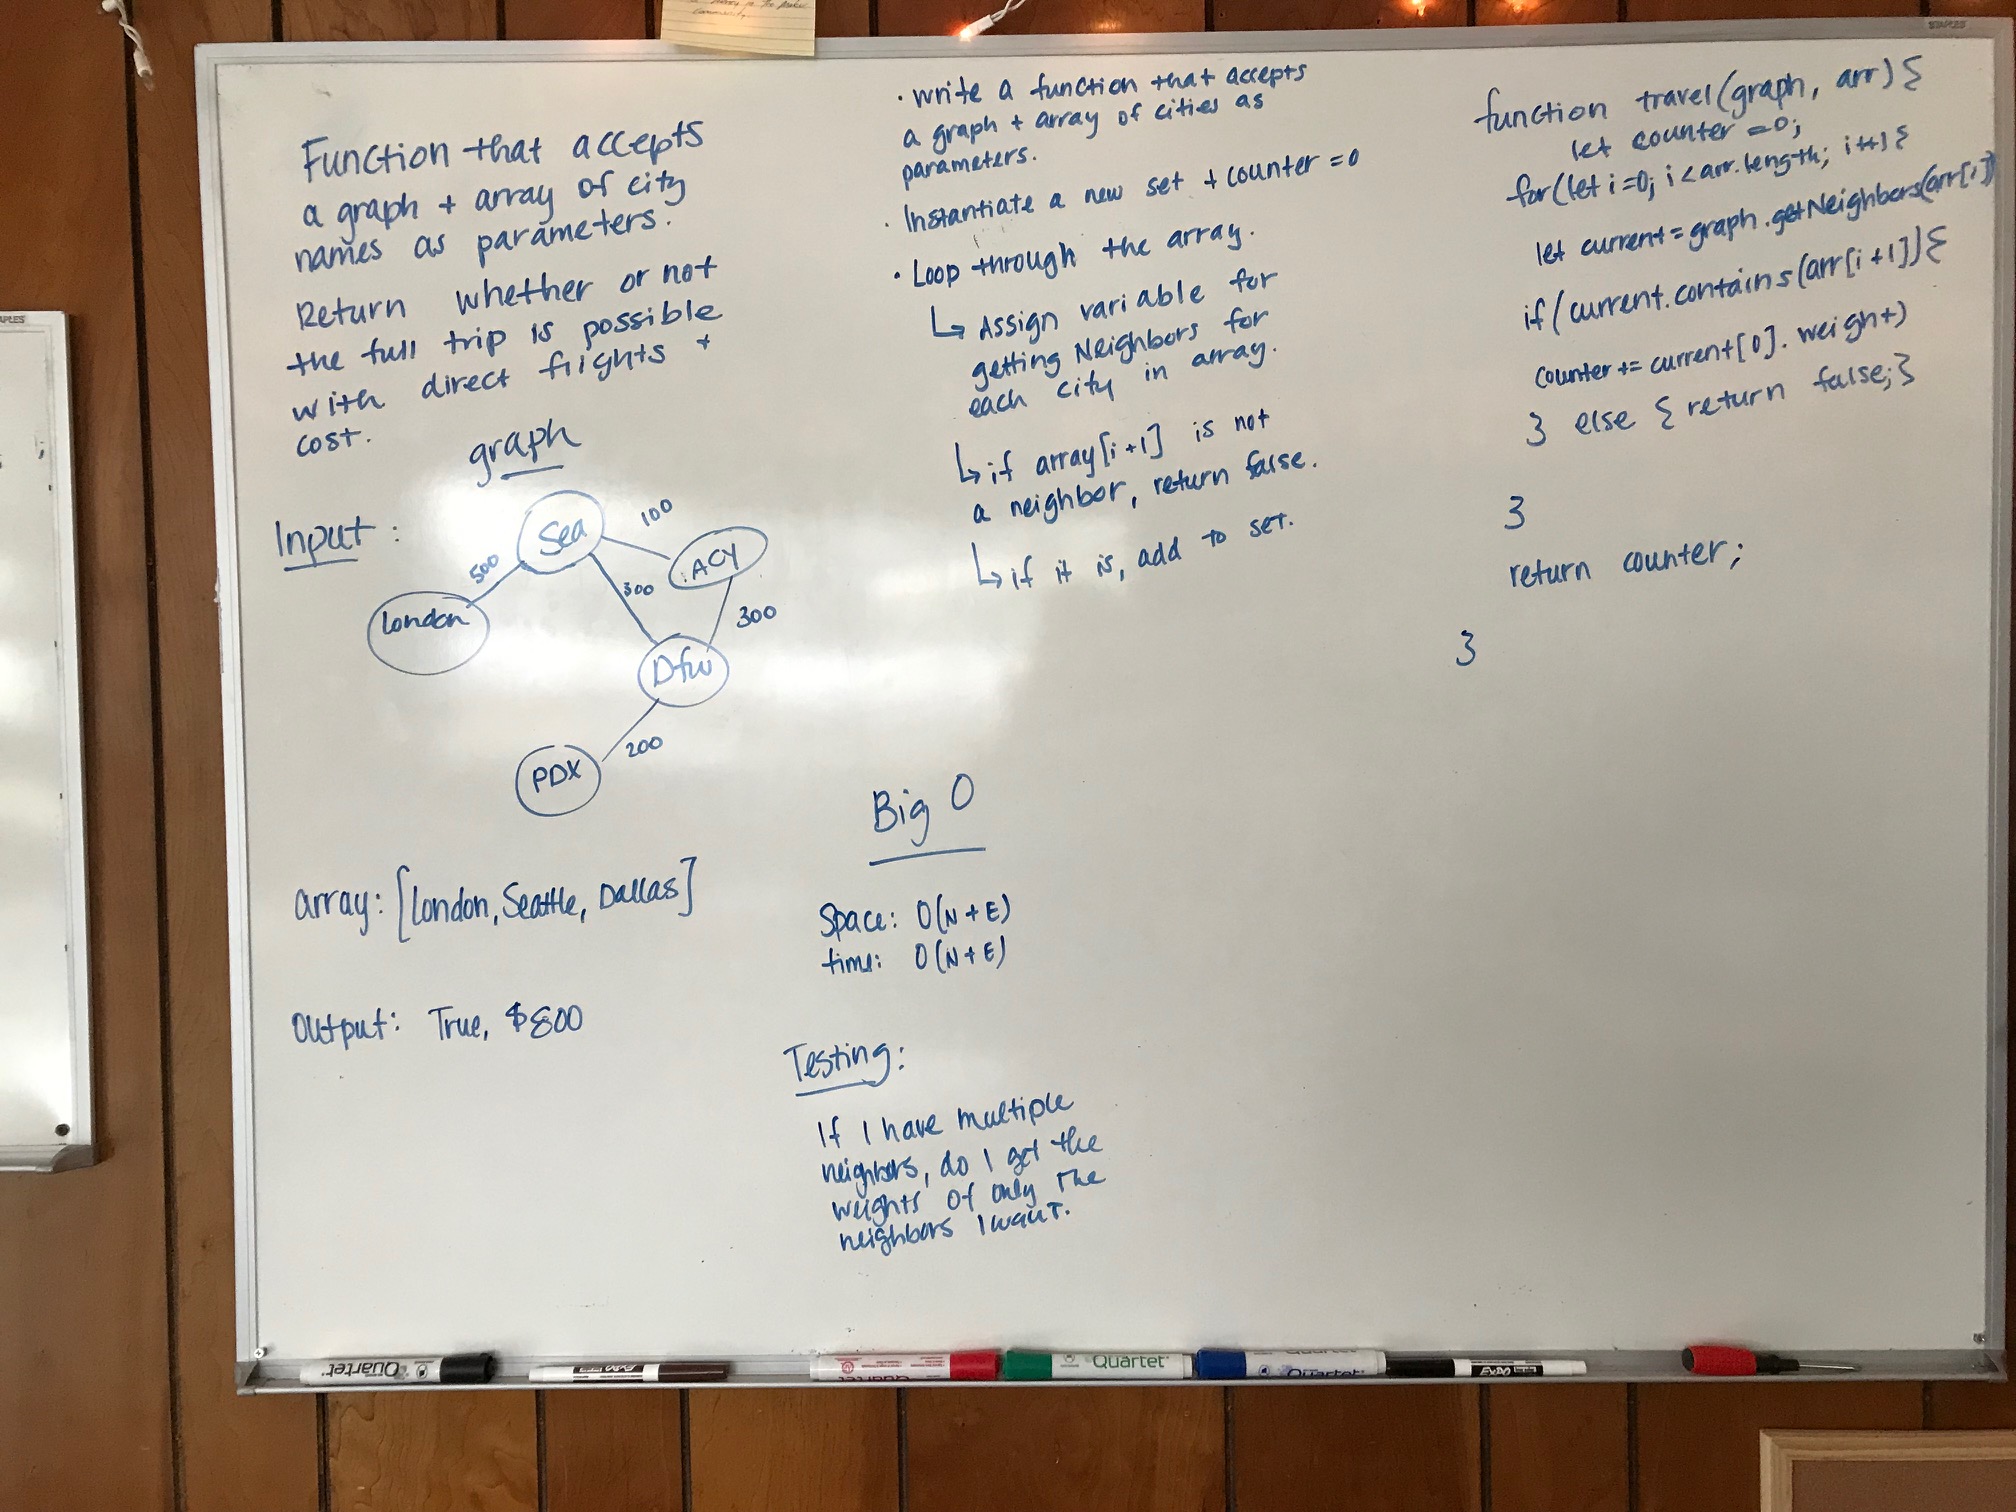 Function that accepts
a graph + array of city
names as parameters.
Return whether or not
the full trip is possible
with direct flights +
cost.
graph
Input:
Sea
100
ACY
500
300
London
300
Dfw
200
PDX
array: [London, Seattle, Dallas]
output: True, $800
· write a function that accepts
a graph + array of cities as
parameters.
· Instantiate a new set + counter = 0
· Loop through the array.
↳ Assign variable for
getting Neighbors for
each city in array.
↳ if array[i+1] is not
a neighbor, return false.
↳ if it is, add to set.
Big O
Space: O(N+E)
time: O(N+E)
Testing:
If I have multiple
neighbors, do I get the
weights of only the
neighbors I want.
function travel(graph, arr) {
let counter = 0;
for(let i=0; i < arr.length; i++) {
let current = graph.getNeighbors(arr[i])
if (current.contains(arr[i+1]) {
counter += current[0].weight)
} else { return false; }
}
return counter;
}
STAPLES
Quartet
EXPO
Quartet
Quartet
Quartet
EXPO